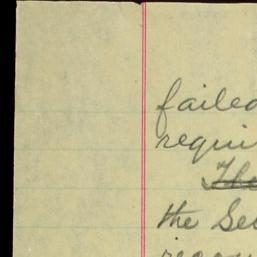 failed
requi
The
the Se